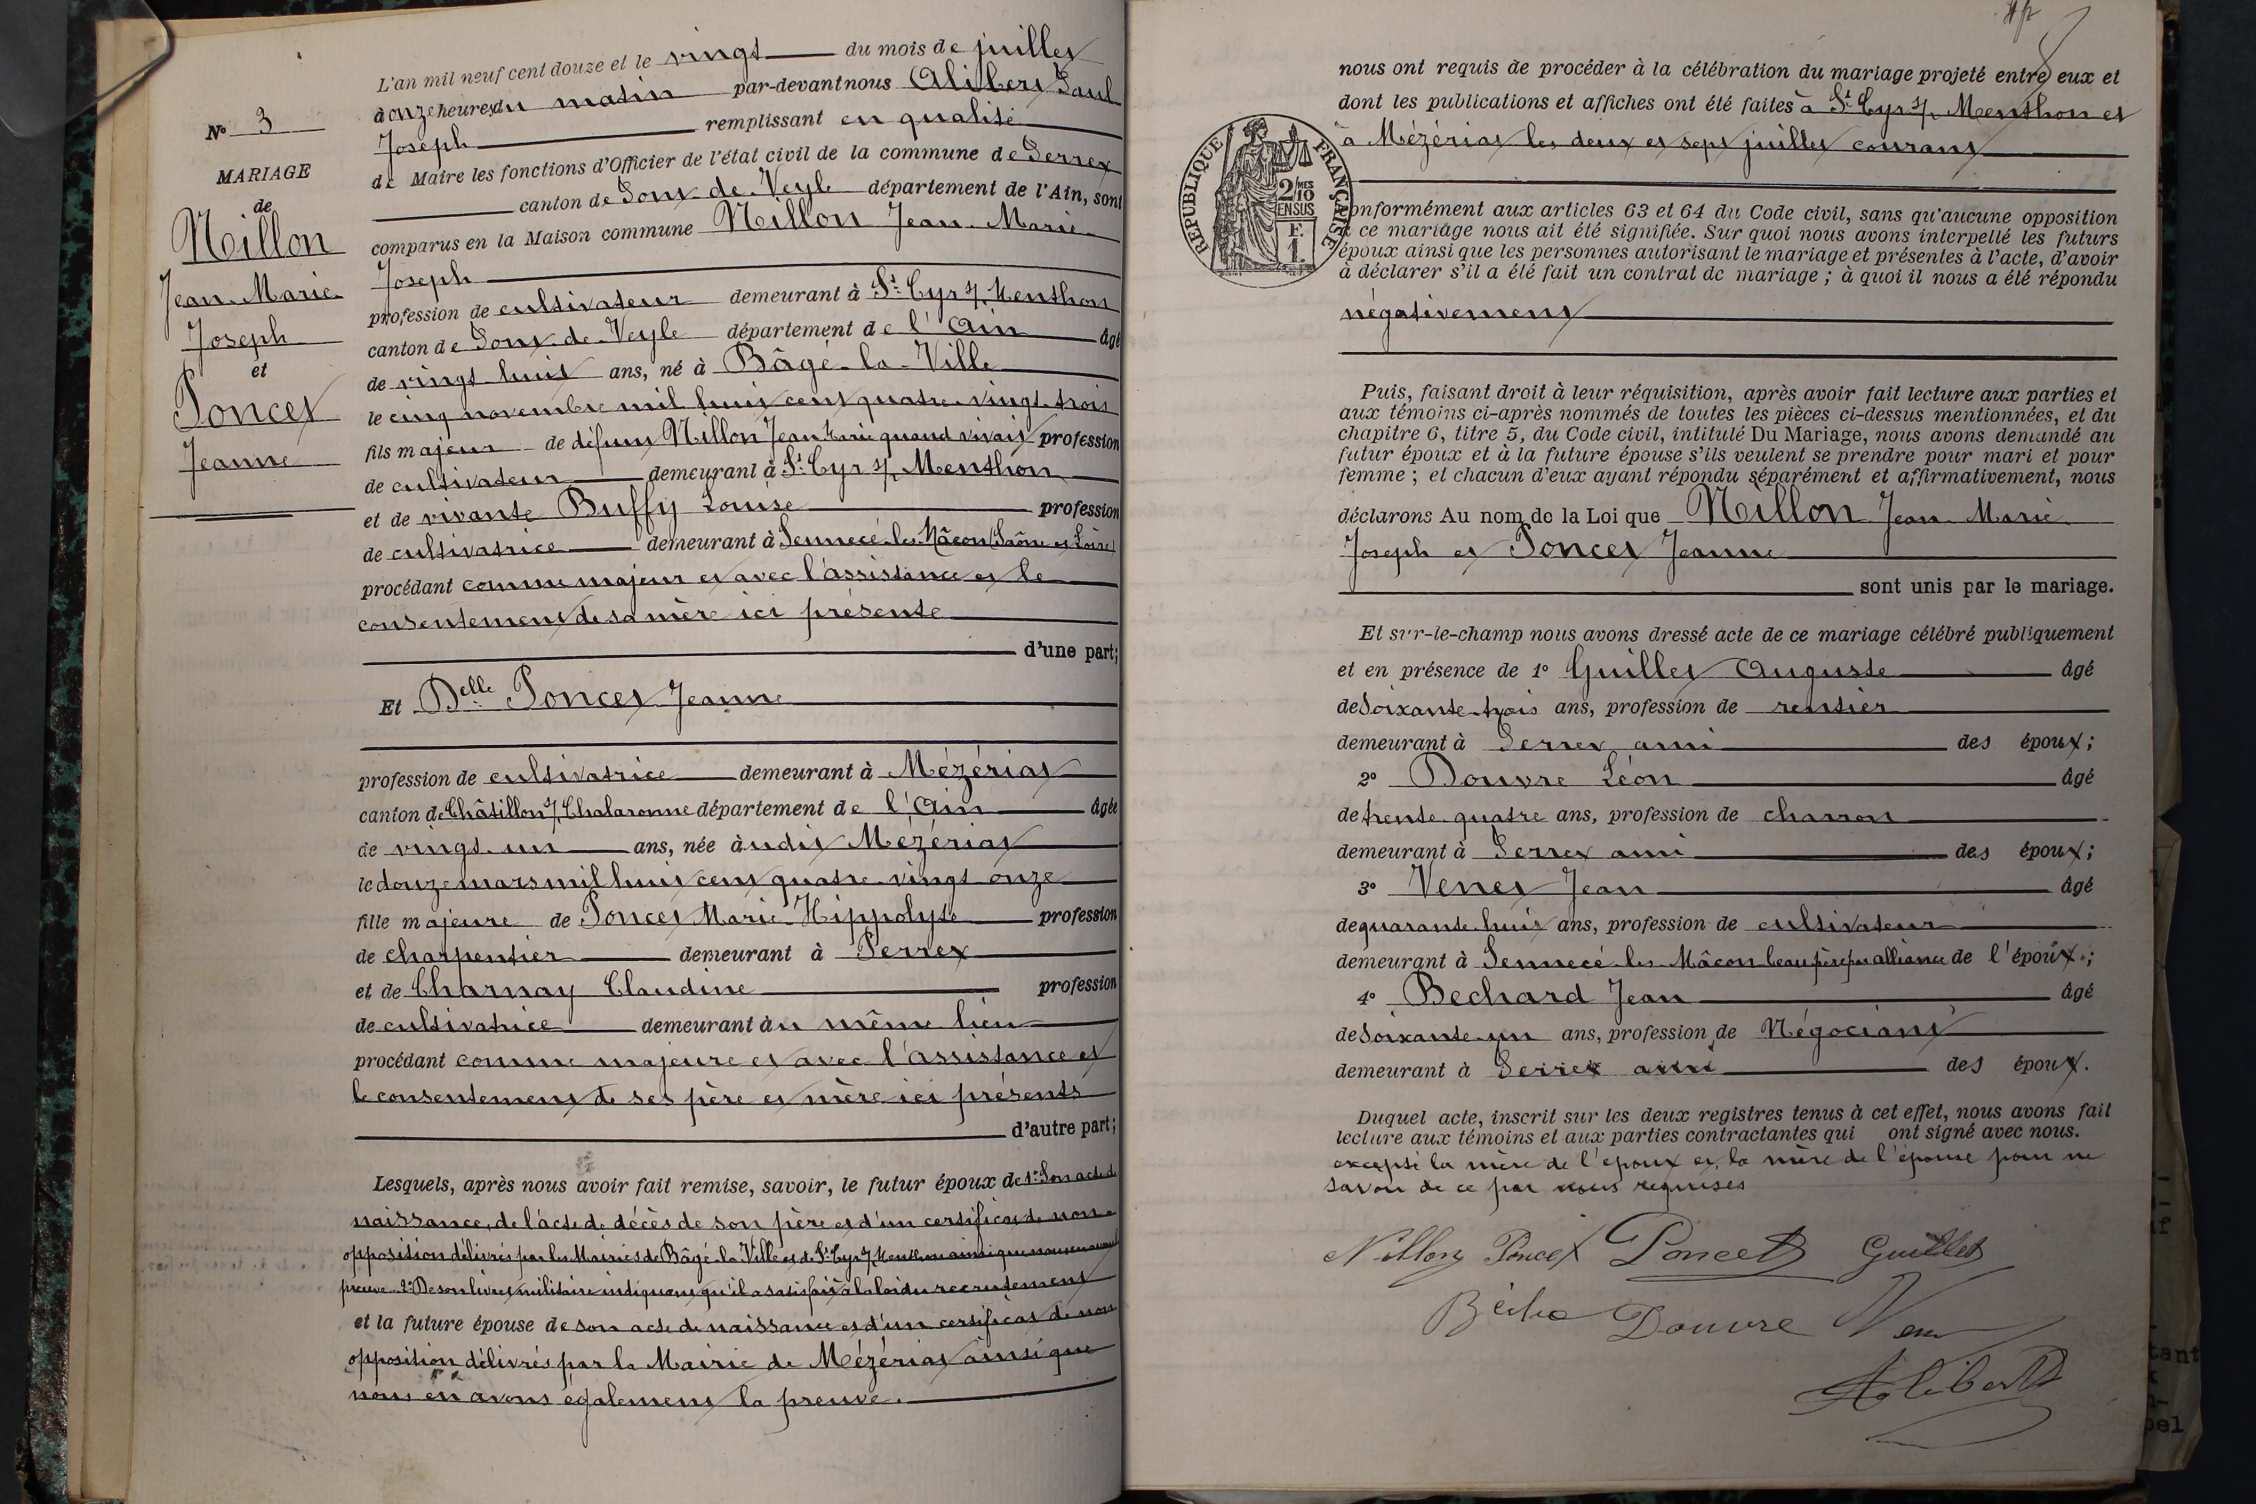 L'an mil neuf cent douze et le vingt du mois de juillet
à onze heures du matin par-devant nous Alibert Paul
Joseph remplissant en qualité
de Maire les fonctions d'Officier de l'état civil de la commune de Perrex
canton de Pont-de-Veyle département de l'Ain, sont
comparus en la Maison commune Nillon Jean-Marie
Joseph
profession de cultivateur demeurant à St Cyr s/ Menthon
canton de Pont-de-Veyle département de l'Ain âgé
de vingt-huit ans, né à Bâgé-la-Ville
le cinq novembre mil huit cent quatre-vingt-trois
fils majeur de défunt Nillon Jean Marie quand vivait profession
de cultivateur demeurant à St Cyr s/ Menthon
et de vivante Buffy Louise profession
de cultivatrice demeurant à Sennecé-les-Mâcon (Saône et Loire)
procédant comme majeur et avec l'assistance et le
consentement de sa mère ici présente
d'une part;
Et Delle Poncet Jeanne
profession de cultivatrice demeurant à Mézériat
canton de Châtillon s/ Chalaronne département de l'Ain âgée
de vingt-un ans, née à udit Mézériat
le douze mars mil huit cent quatre-vingt-onze
fille majeure de Poncet Marie-Hippolyte profession
de charpentier demeurant à Perrex
et de Charnay Claudine profession
de cultivatrice demeurant àu même lieu
procédant comme majeure et avec l'assistance et
le consentement de ses père et mère ici présents
d'autre part;
Lesquels, après nous avoir fait remise, savoir, le futur époux de 1° Son acte de
naissance, de l'acte de décès de son père et d'un certificat de non-
opposition délivrés par les Mairies de Bâgé-la-Ville et de St Cyr s/ Menthon ainsi que nous en avons
preuve. 2° De son livret militaire indiquant qu'il a satisfait à la loi du recrutement
et la future épouse de son acte de naissance et d'un certificat de non
opposition délivrés par la Mairie de Mézériat ainsi que
nous en avons également la preuve.
N° 3
MARIAGE
de
Nillon
Jean-Marie
Joseph
et
Poncet
Jeanne
nous ont requis de procéder à la célébration du mariage projeté entre eux et
dont les publications et affiches ont été faites à St Cyr s/ Menthon et
à Mézériat les deux et sept juillet courant
RÉPUBLIQUE FRANÇAISE
2/10 MES
EN SUS
F.
1.
conformément aux articles 63 et 64 du Code civil, sans qu'aucune opposition
à ce mariage nous ait été signifiée. Sur quoi nous avons interpellé les futurs
époux ainsi que les personnes autorisant le mariage et présentes à l'acte, d'avoir
à déclarer s'il a été fait un contrat de mariage ; à quoi il nous a été répondu
négativement
Puis, faisant droit à leur réquisition, après avoir fait lecture aux parties et
aux témoins ci-après nommés de toutes les pièces ci-dessus mentionnées, et du
chapitre 6, titre 5, du Code civil, intitulé Du Mariage, nous avons demandé au
futur époux et à la future épouse s'ils veulent se prendre pour mari et pour
femme ; et chacun d'eux ayant répondu séparément et affirmativement, nous
déclarons Au nom de la Loi que Nillon Jean-Marie
Joseph et Poncet Jeanne
sont unis par le mariage.
Et sur-le-champ nous avons dressé acte de ce mariage célébré publiquement
et en présence de 1° Guillet Auguste âgé
de soixante-trois ans, profession de rentier
demeurant à Perrex ami des époux;
2° Douvre Léon âgé
de trente-quatre ans, profession de charron
demeurant à Perrex ami des époux;
3° Venet Jean âgé
de quarante-huit ans, profession de cultivateur
demeurant à Sennecé-les-Mâcon beau père par alliance de l'époux;
4° Bechard Jean âgé
de soixante-un ans, profession de Négociant
demeurant à Perrex ami des époux.
Duquel acte, inscrit sur les deux registres tenus à cet effet, nous avons fait
lecture aux témoins et aux parties contractantes qui ont signé avec nous.
excepté la mère de l'époux et la mère de l'épouse pour ne
savoir de ce par nous requises
Nillon Poncet Poncet Guillet
Douvre
Alibert